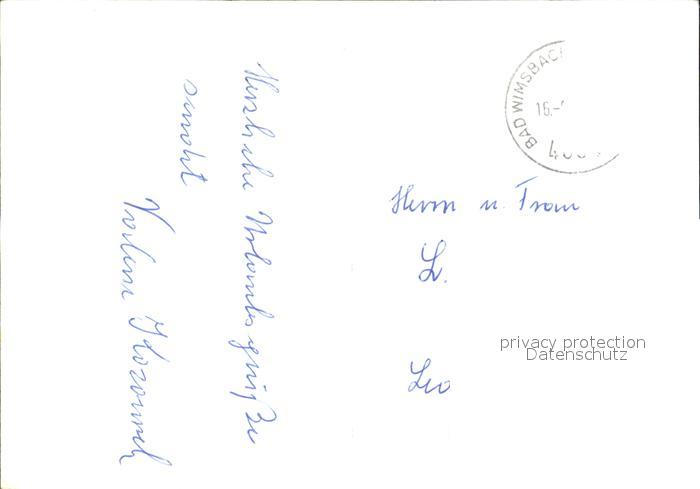 Herzliche Urlaubsgrüße
sendet
BAD WIMSBACH
16.-
Herrn u. Frau
L.
Leo
privacy protection
Datenschutz